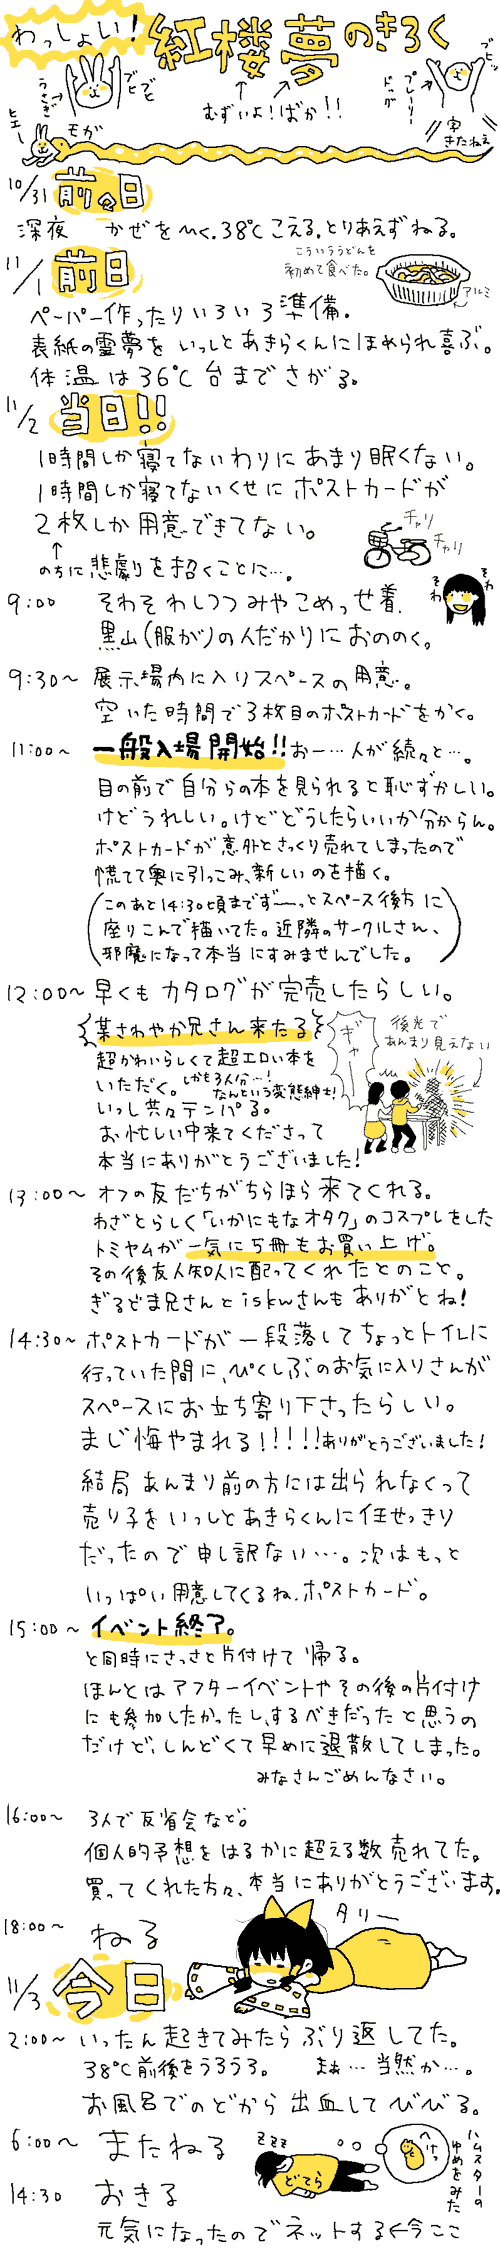 わっしょい!
紅楼夢のきろく
むずいよ!ばか!!
うさぎ
プレーリードッグ
字きたねえ
モガ
10/31 前々日
深夜 かぜをひく。38℃こえる。とりあえずねる。
11/1 前日
こういううどんを
初めて食べた。
アルミ
ペーパー作ったりいろいろ準備。
表紙の霊夢をいっしとあきらくんにほめられ喜ぶ。
体温は36℃台までさがる。
11/2 当日!!
1時間しか寝てないわりにあまり眠くない。
1時間しか寝てないくせにポストカードが
2枚しか用意できてない。
のちに悲劇を招くことに…。
チャリ
チャリ
9:00 そわそわしつつみやこめっせ着。
黒山(服が)の人だかりにおののく。
そわ
そわ
9:30~ 展示場内に入りスペースの用意。
空いた時間で3枚目のポストカードをかく。
11:00~ 一般入場開始!!おー…人が続々と…。
目の前で自分らの本を見られると恥ずかしい。
けどうれしい。けどどうしたらいいか分からん。
ポストカードが意外とさっくり売れてしまったので
慌てて奥に引っこみ、新しいのを描く。
(このあと14:30頃までずーーっとスペース後方に
座りこんで描いてた。近隣のサークルさん、
邪魔になって本当にすみませんでした。)
12:00~ 早くもカタログが完売したらしい。
某さわやか兄さん来たる
超かわいらしくて超エロい本を
いただく。しかも3人分…!
なんという変態紳士!
いっし共々テンパる。
お忙しい中来てくださって
本当にありがとうございました!
ギャー
後光で
あんまり見えない
13:00~ オフの友だちがちらほら来てくれる。
わざとらしく「いかにもなオタク」のコスプレをした
トミヤムが一気に5冊もお買い上げ。
その後友人知人に配ってくれたとのこと。
ぎるどま兄さんとiskwさんもありがとね!
14:30~ ポストカードが一段落してちょっとトイレに
行っていた間に、ぴくしぶのお気に入りさんが
スペースにお立ち寄り下さったらしい。
まじ悔やまれる!!!!!ありがとうございました!
結局あんまり前の方には出られなくって
売り子をいっしとあきらくんに任せっきり
だったので申し訳ない…。次はもっと
いっぱい用意してくるね、ポストカード。
15:00~ イベント終了。
と同時にさっさと片付けて帰る。
ほんとはアフターイベントやその後の片付け
にも参加したかったし、するべきだったと思うの
だけど、しんどくて早めに退散してしまった。
みなさんごめんなさい。
16:00~ 3人で反省会など。
個人的予想をはるかに超える数売れてた。
買ってくれた方々、本当にありがとうございます。
18:00~ ねる
タリー
11/3 今日
2:00~ いったん起きてみたらぶり返してた。
38℃前後をうろうろ。 まぁ…当然か…。
お風呂でのどから出血してびびる。
6:00~ またねる
zzz
どてら
へけっ
ハムスターの
ゆめをみた
14:30 おきる
元気になったのでネットする←今ここ